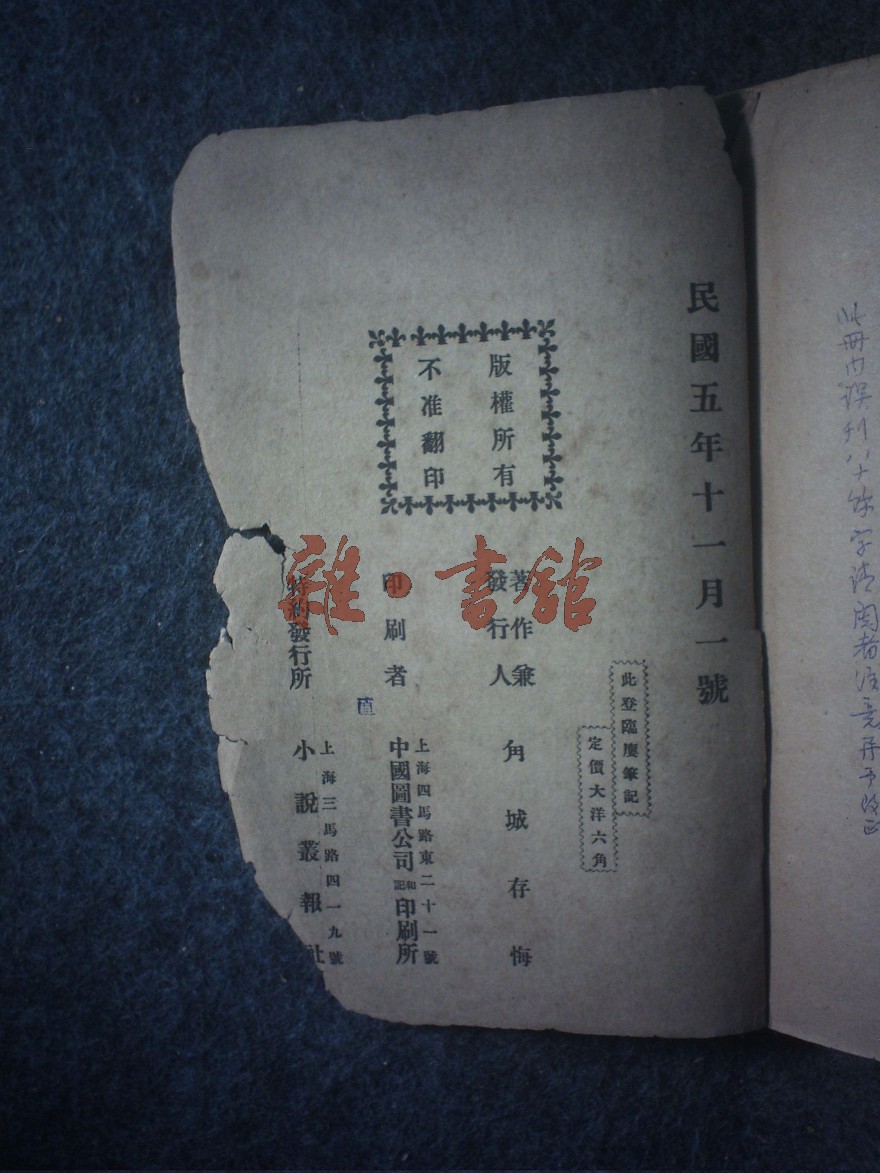 此冊內誤刊八十餘字請閱者注意并予改正
民國五年十一月一號
此登臨廔筆記
定價大洋六角
版權所有
不准翻印
著作兼
發行人
角城存悔
印刷者
上海四馬路東二十一號
中國圖書公司和記印刷所
特約發行所
上海三馬路四一九號
小說叢報社
雜·書館